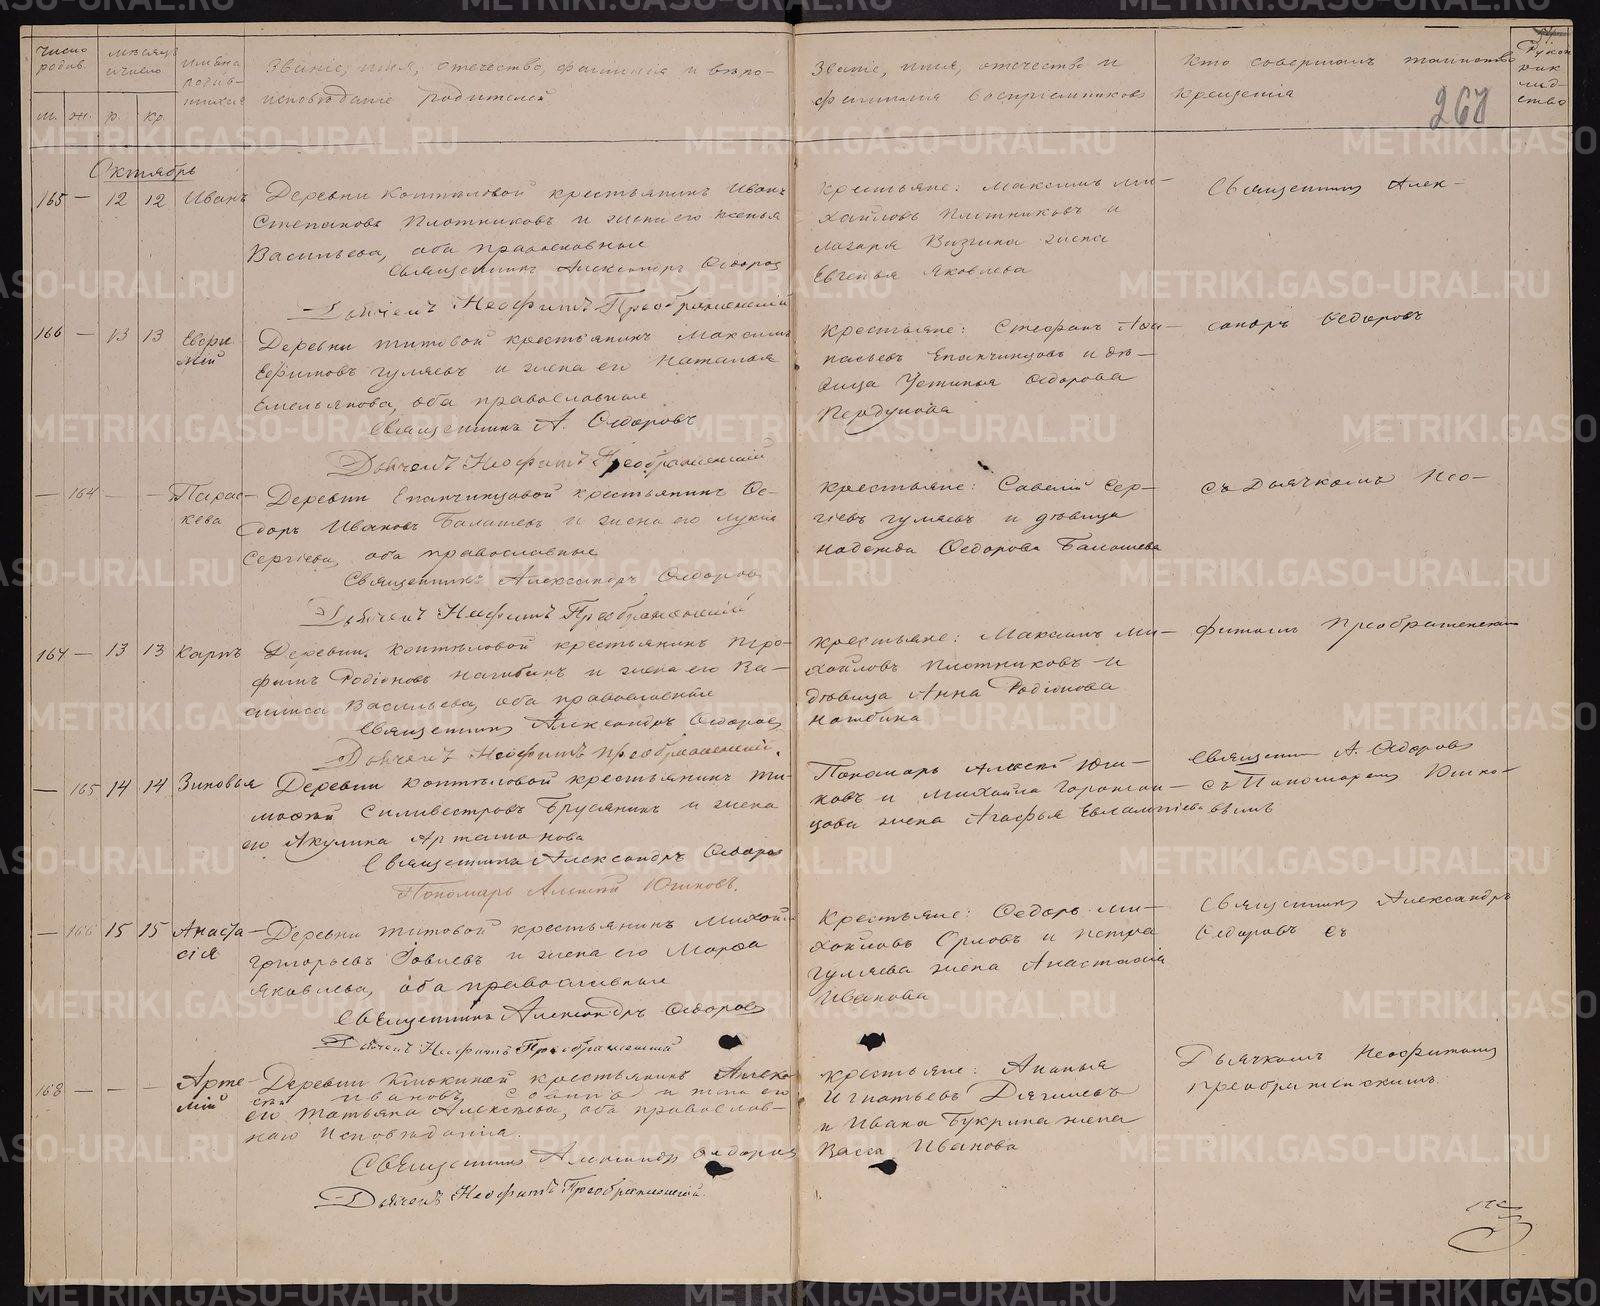 число родив.
мѣсяцъ и число
имѣна родив-шихся
Званіе, имя, отечество, фамилія и вѣро-
исповѣданіе родителей
Званіе, имя, отечество и
фамилія воспріемниковъ
Кто совершалъ таинство
крещенія
Рукоприкладство
268
м. ж. р. кр.
Октябрь
165 — 12 12 Иванъ
Деревни Коптѣловой крестьянинъ Иванъ
Степановъ Плотниковъ и жена его
Васильева, оба православные
Священникъ Александръ Ѳедоровъ
Дьячекъ Неофитъ Преображенскій
Крестьяне: Максимъ Ми-
хайловъ Плотниковъ и
Лазаря Вязгина жена
Евгенья Яковлева
Священникъ Алек-
166 — 13 13 Евфи
мій
Деревни Титовой крестьянинъ Максимъ
Ефимовъ Гуляевъ и жена его Наталья
Емельянова, оба православные
Священникъ А. Ѳедоровъ
Дьячекъ Неофитъ Преображенскій
Крестьяне: Стефанъ Аѳа-
насьевъ Епанчинцовъ и дѣ-
вица Устинья Ѳедорова
Пердунова
сандръ Ѳедоровъ
— 164 — — Парас-
кева
Деревни Епанчинцовой крестьянинъ Ѳе-
доръ Ивановъ Балашевъ и жена его Лукия
Сергіева, оба православные
Священникъ Александръ Ѳедоровъ
Дьячекъ Неофитъ Преображенскій
Крестьяне: Савелій Сер-
гіевъ Гуляевъ и дѣвица
Надежда Ѳедорова Балашева
съ Дьячкомъ Нео-
167 — 13 13 Карпъ
Деревни Коптѣловой крестьянинъ Тро-
фимъ Родіоновъ Нагибинъ и жена его Ва-
силиса Васильева, оба православные
Священникъ Александръ Ѳедоровъ
Дьячекъ Неофитъ Преображенскій.
Крестьяне: Максимъ Ми-
хайловъ Плотниковъ и
дѣвица Анна Родіонова
Нагибина
фитомъ Преображенскимъ
— 165 14 14 Зиновья
Деревни Коптѣловой крестьянинъ Ти-
моѳей Силивестровъ Брусянинъ и жена
его Акулина Артамонова
Священникъ Александръ Ѳедоровъ
Пономарь Алексѣй Юшковъ.
Пономарь Алексѣй Юш-
ковъ и Михайла
жена Агафья Евлампіева
Священникъ А. Ѳедоровъ
съ Пономаремъ Юшко-
вымъ
— 166 15 15 Анаста
сія
Деревни Титовой крестьянинъ Михайлъ
Григорьевъ Іовлевъ и жена его Марѳа
Яковлева, оба православные
Священникъ Александръ Ѳедоровъ
Дьячекъ Неофитъ Преображенскій
Крестьяне: Ѳедоръ Ми-
хайловъ Орловъ и Петра
Гуляева жена Анастасія
Иванова
Священникъ Александръ
Ѳедоровъ съ
168 — — — Арте
мій
Деревни Клюкиной крестьянинъ Алек-
сѣй Ивановъ и жена его
Татьяна Алексѣева, оба православ-
наго исповѣданія.
Священникъ Александръ Ѳедоровъ
Дьячекъ Неофитъ Преображенскій.
Крестьяне: Ананья
Игнатьевъ Дягилевъ
и Ивана Букрина жена
Васса Иванова
Дьячкомъ Неофитомъ
Преображенскимъ.
METRIKI.GASO-URAL.RU